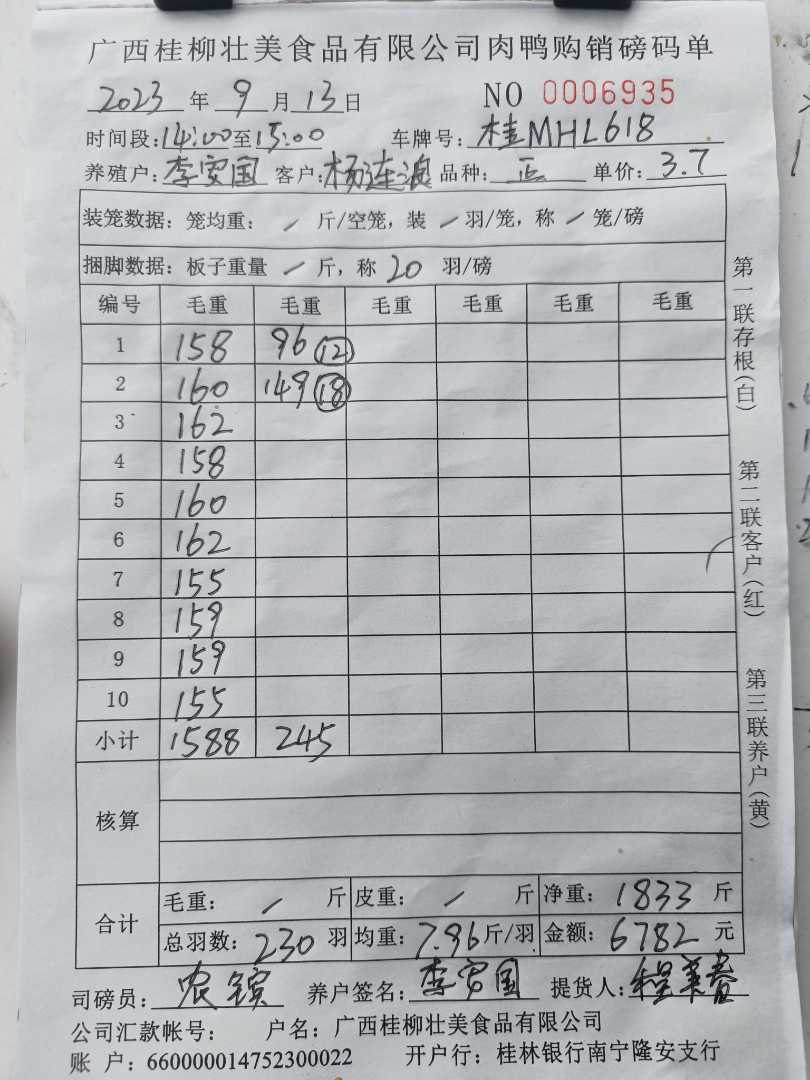 广西桂柳壮美食品有限公司肉鸭购销磅码单
2023 年 9 月 13 日 NO 0006935
时间段:14:00至15:00 车牌号:桂MHL618
养殖户:李安国 客户:杨连波 品种:正 单价:3.7
装笼数据:笼均重: / 斤/空笼,装 / 羽/笼,称 / 笼/磅
捆脚数据:板子重量 / 斤,称 20 羽/磅
编号 毛重 毛重 毛重 毛重 毛重 毛重
1 158 96 (12)
2 160 149 (18)
3 162
4 158
5 160
6 162
7 155
8 159
9 159
10 155
小计 1588 245
核算
合计 毛重: / 斤 皮重: / 斤 净重: 1833 斤
总羽数: 230 羽 均重: 7.96 斤/羽 金额: 6782 元
司磅员:农镔 养户签名:李安国 提货人:程美春
公司汇款帐号: 户名:广西桂柳壮美食品有限公司
账 户:660000014752300022 开户行:桂林银行南宁隆安支行
第一联存根(白)
第二联客户(红)
第三联养户(黄)